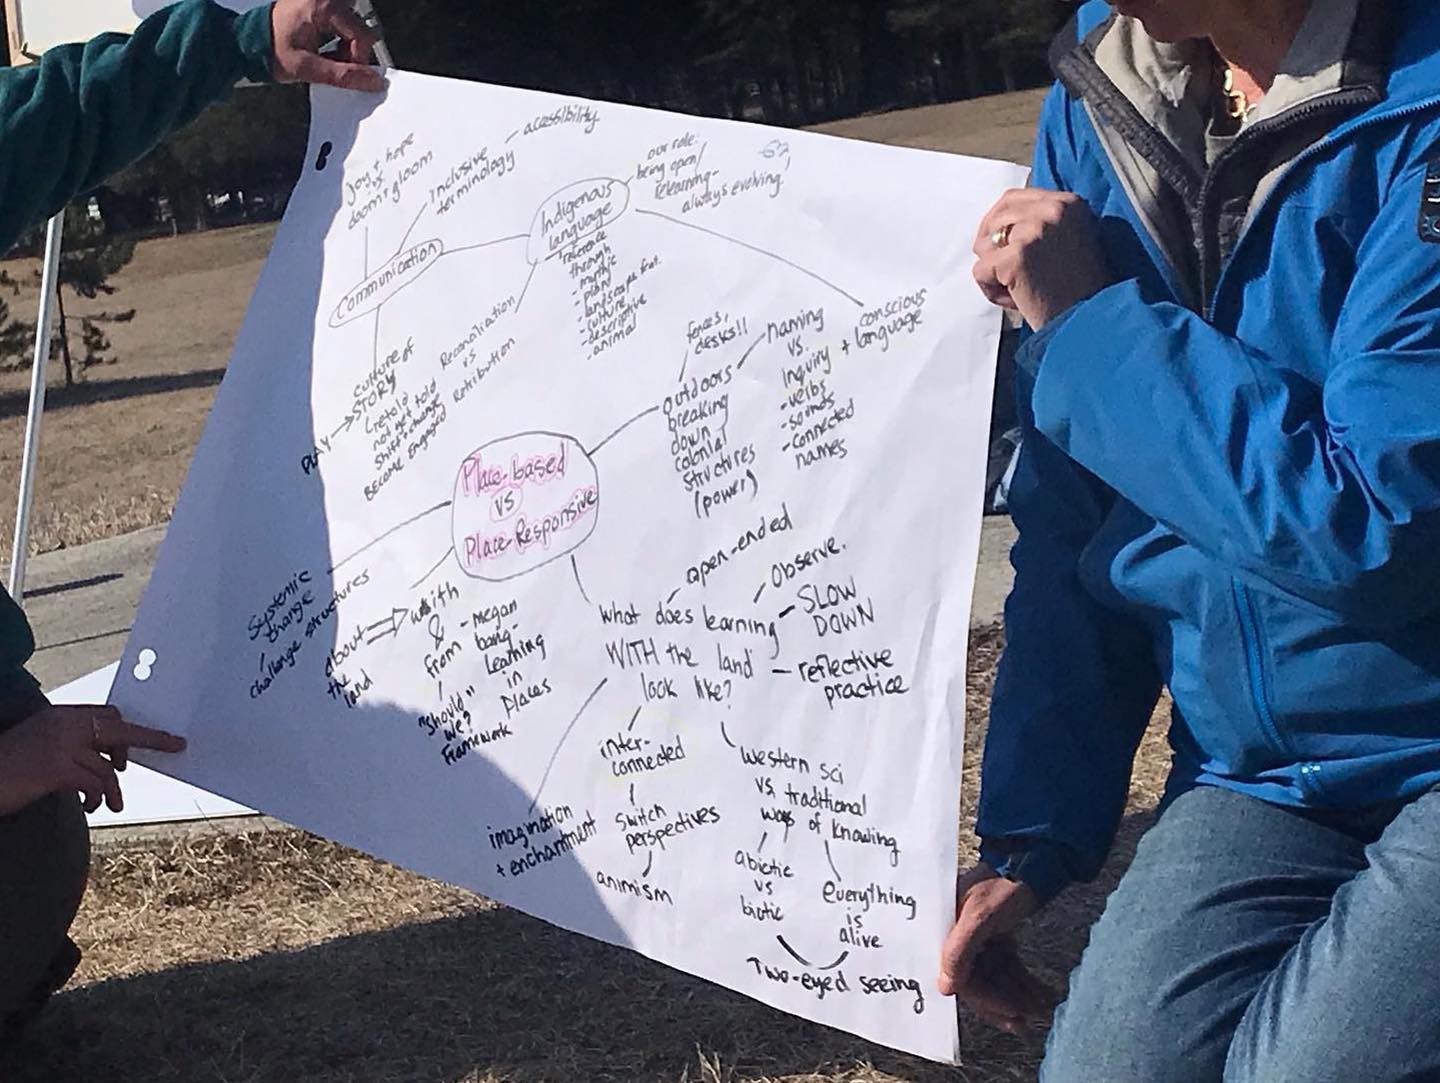 Joy + hope
vs
doom + gloom
inclusive
terminology
accessibility
Communication
Culture of
STORY
PLAY
(retold
not get told
shift + change
BECOME ENGAGED
Indigenous
language
*reference
through
- plant
- landscape feat.
- culture
- descriptive
- animal
Reconciliation
vs
Retribution
our role:
being open/
relearning-
always evolving.
conscious
+ language
fences,
desks!!
outdoors
breaking
down
colonial
structures
(power)
naming
vs.
inquiry
- verbs
- sounds
- connected
names
Place-based
vs
Place-Responsive
Systemic
change
challenge structures
about
the
land
with
&
from
"should"
we?
Framework
- megan
bang -
Learning
in
Places
What does learning
WITH the land
look like?
open-ended
Observe.
SLOW
DOWN
reflective
practice
imagination
+ enchantment
inter-
connected
switch
perspectives
animism
western sci
vs. traditional
ways of knowing
abiotic
vs
biotic
everything
is
alive
Two-eyed seeing